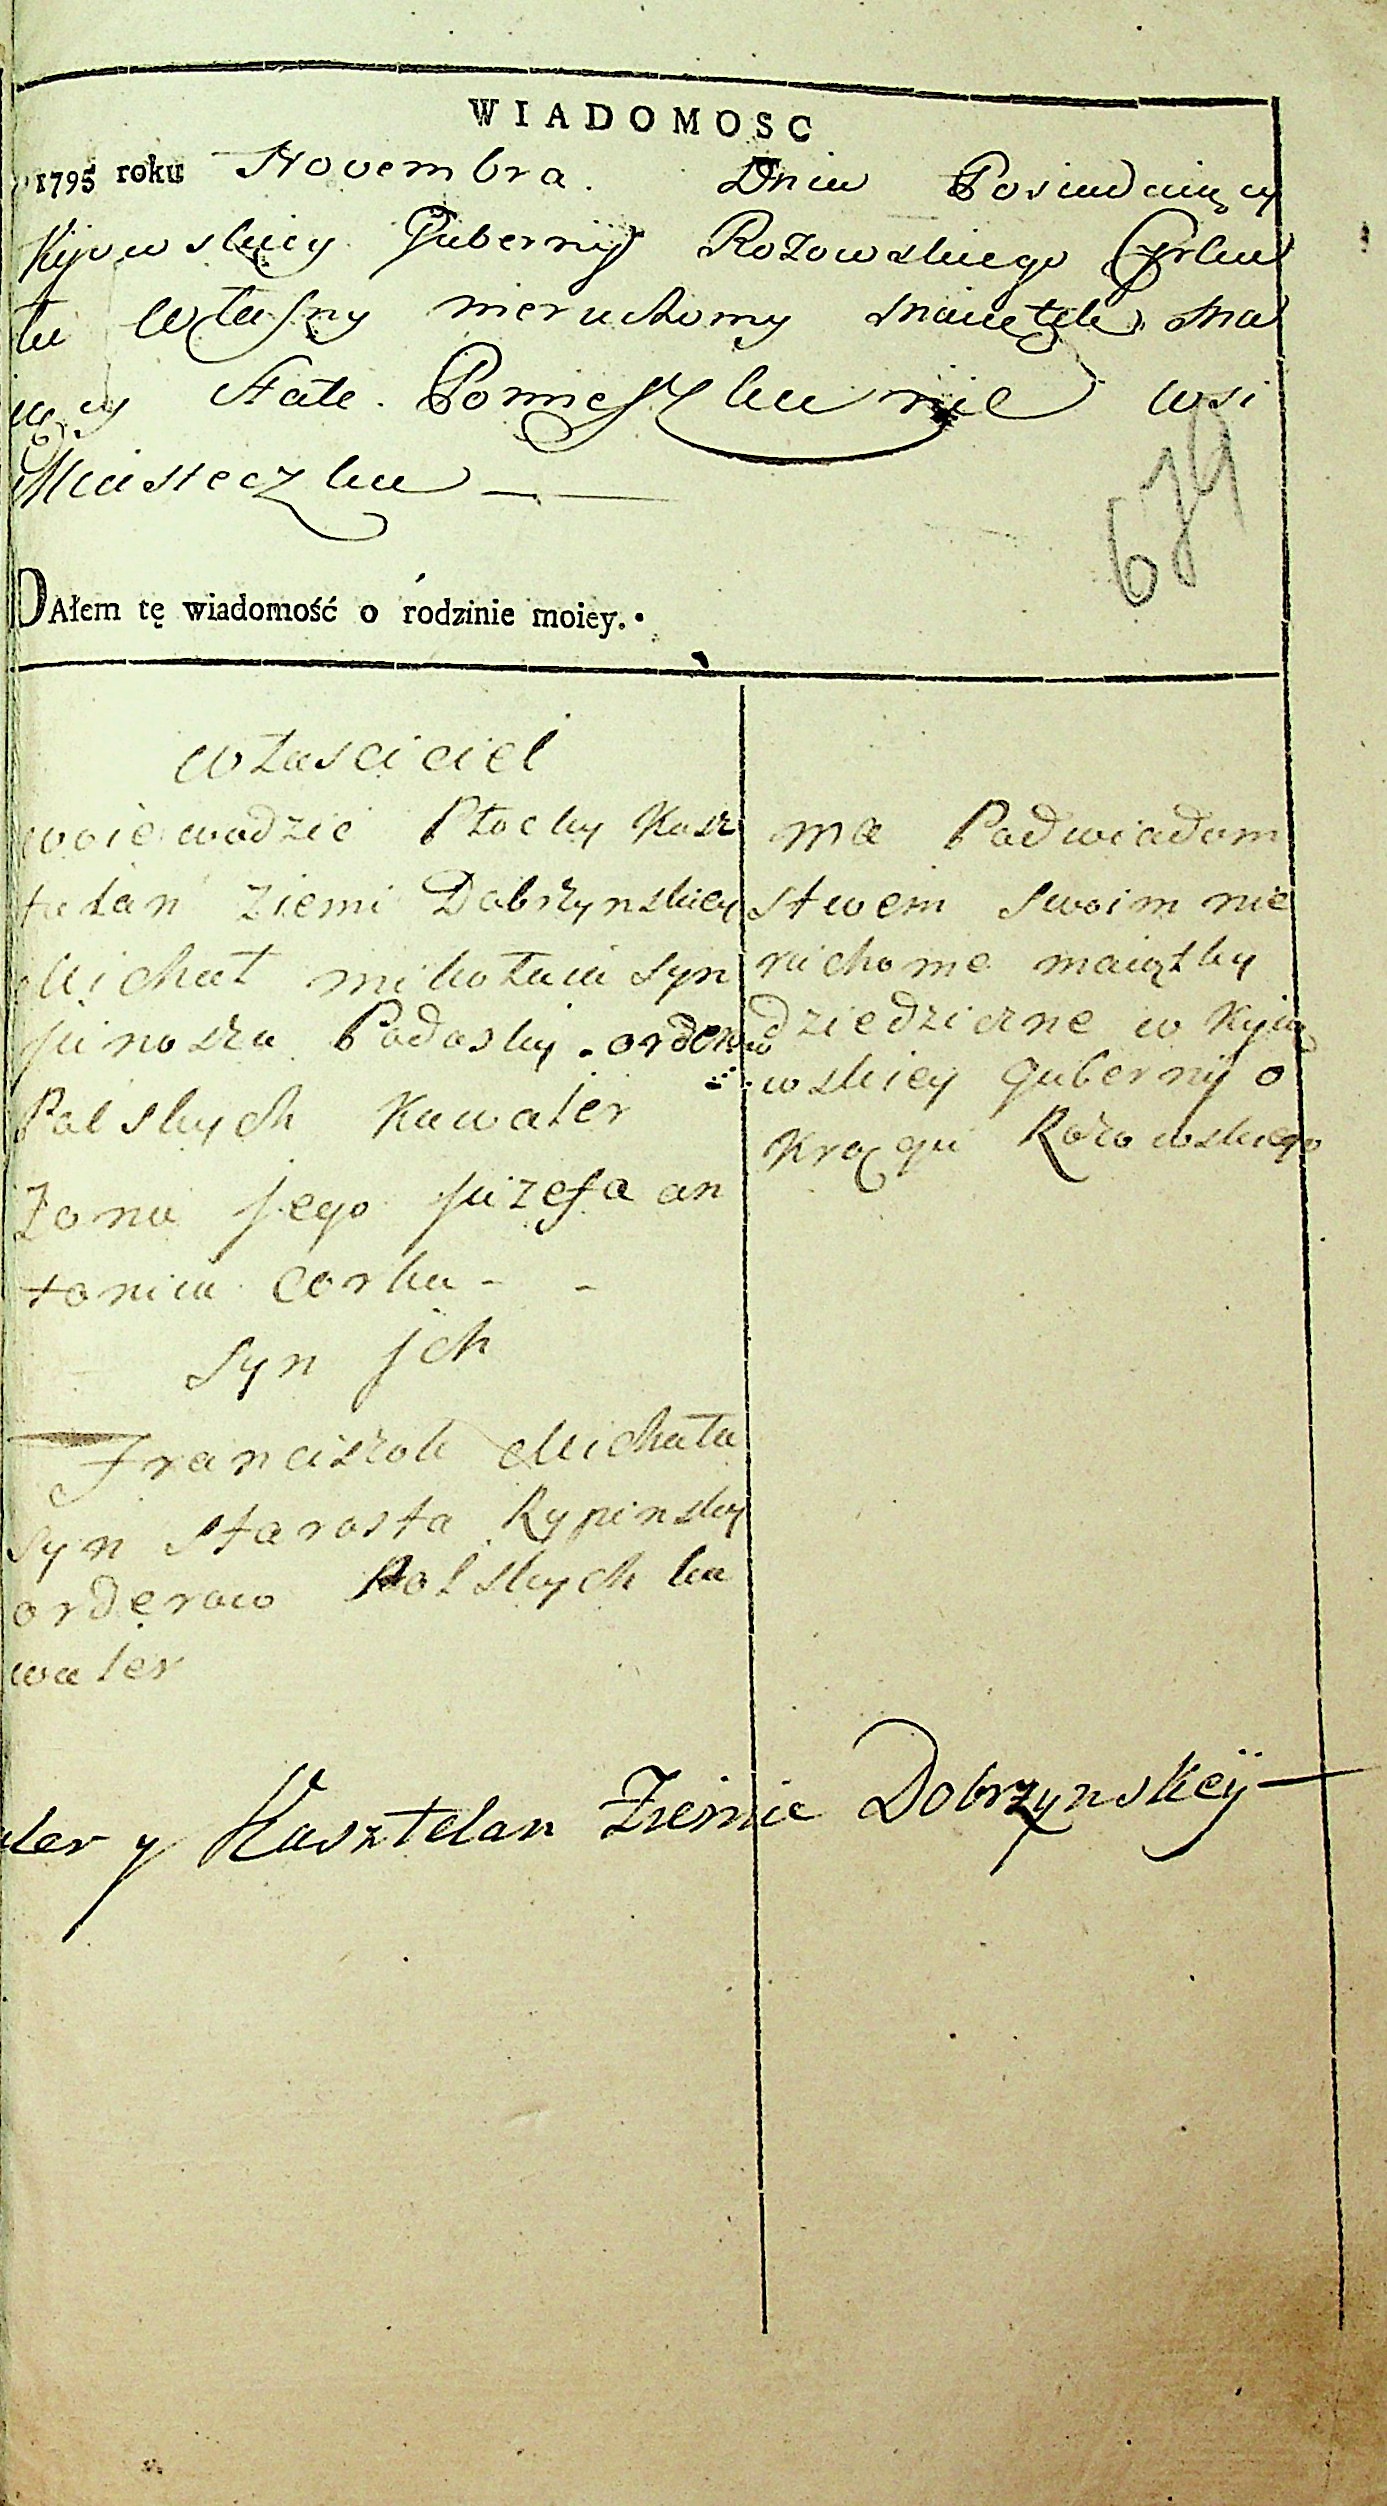 WIADOMOSC
1795 roku Novembra. Dnia Posiadaiący
Kijowskiey Gubernij Rozowskiego Cyrku
łu własny nieruchomy maiętek Ma
iący State Pomieszkanie wsi
Miasteczku
679
DAłem tę wiadomość o rodzinie moiey.
własciciel
woiewodzic Płocky Kasz
telan ziemi Dobrzynskiey
Michał mikołaia syn
junosza Podosky orderow
Polskych Kawaler
Zona jego juzefa an
toniia corka - -
syn jch
Franciszek Michała
syn starosta Rypinsky
orderow Polskych ka
waler
ma Pod wiadom
stwem swoim nie
ruchome maiątky
dziedziczne w Kyio
wskiey gubernij o
Kręgu Rożowskiego
aler y Kasztelan Ziemie Dobrzynskey